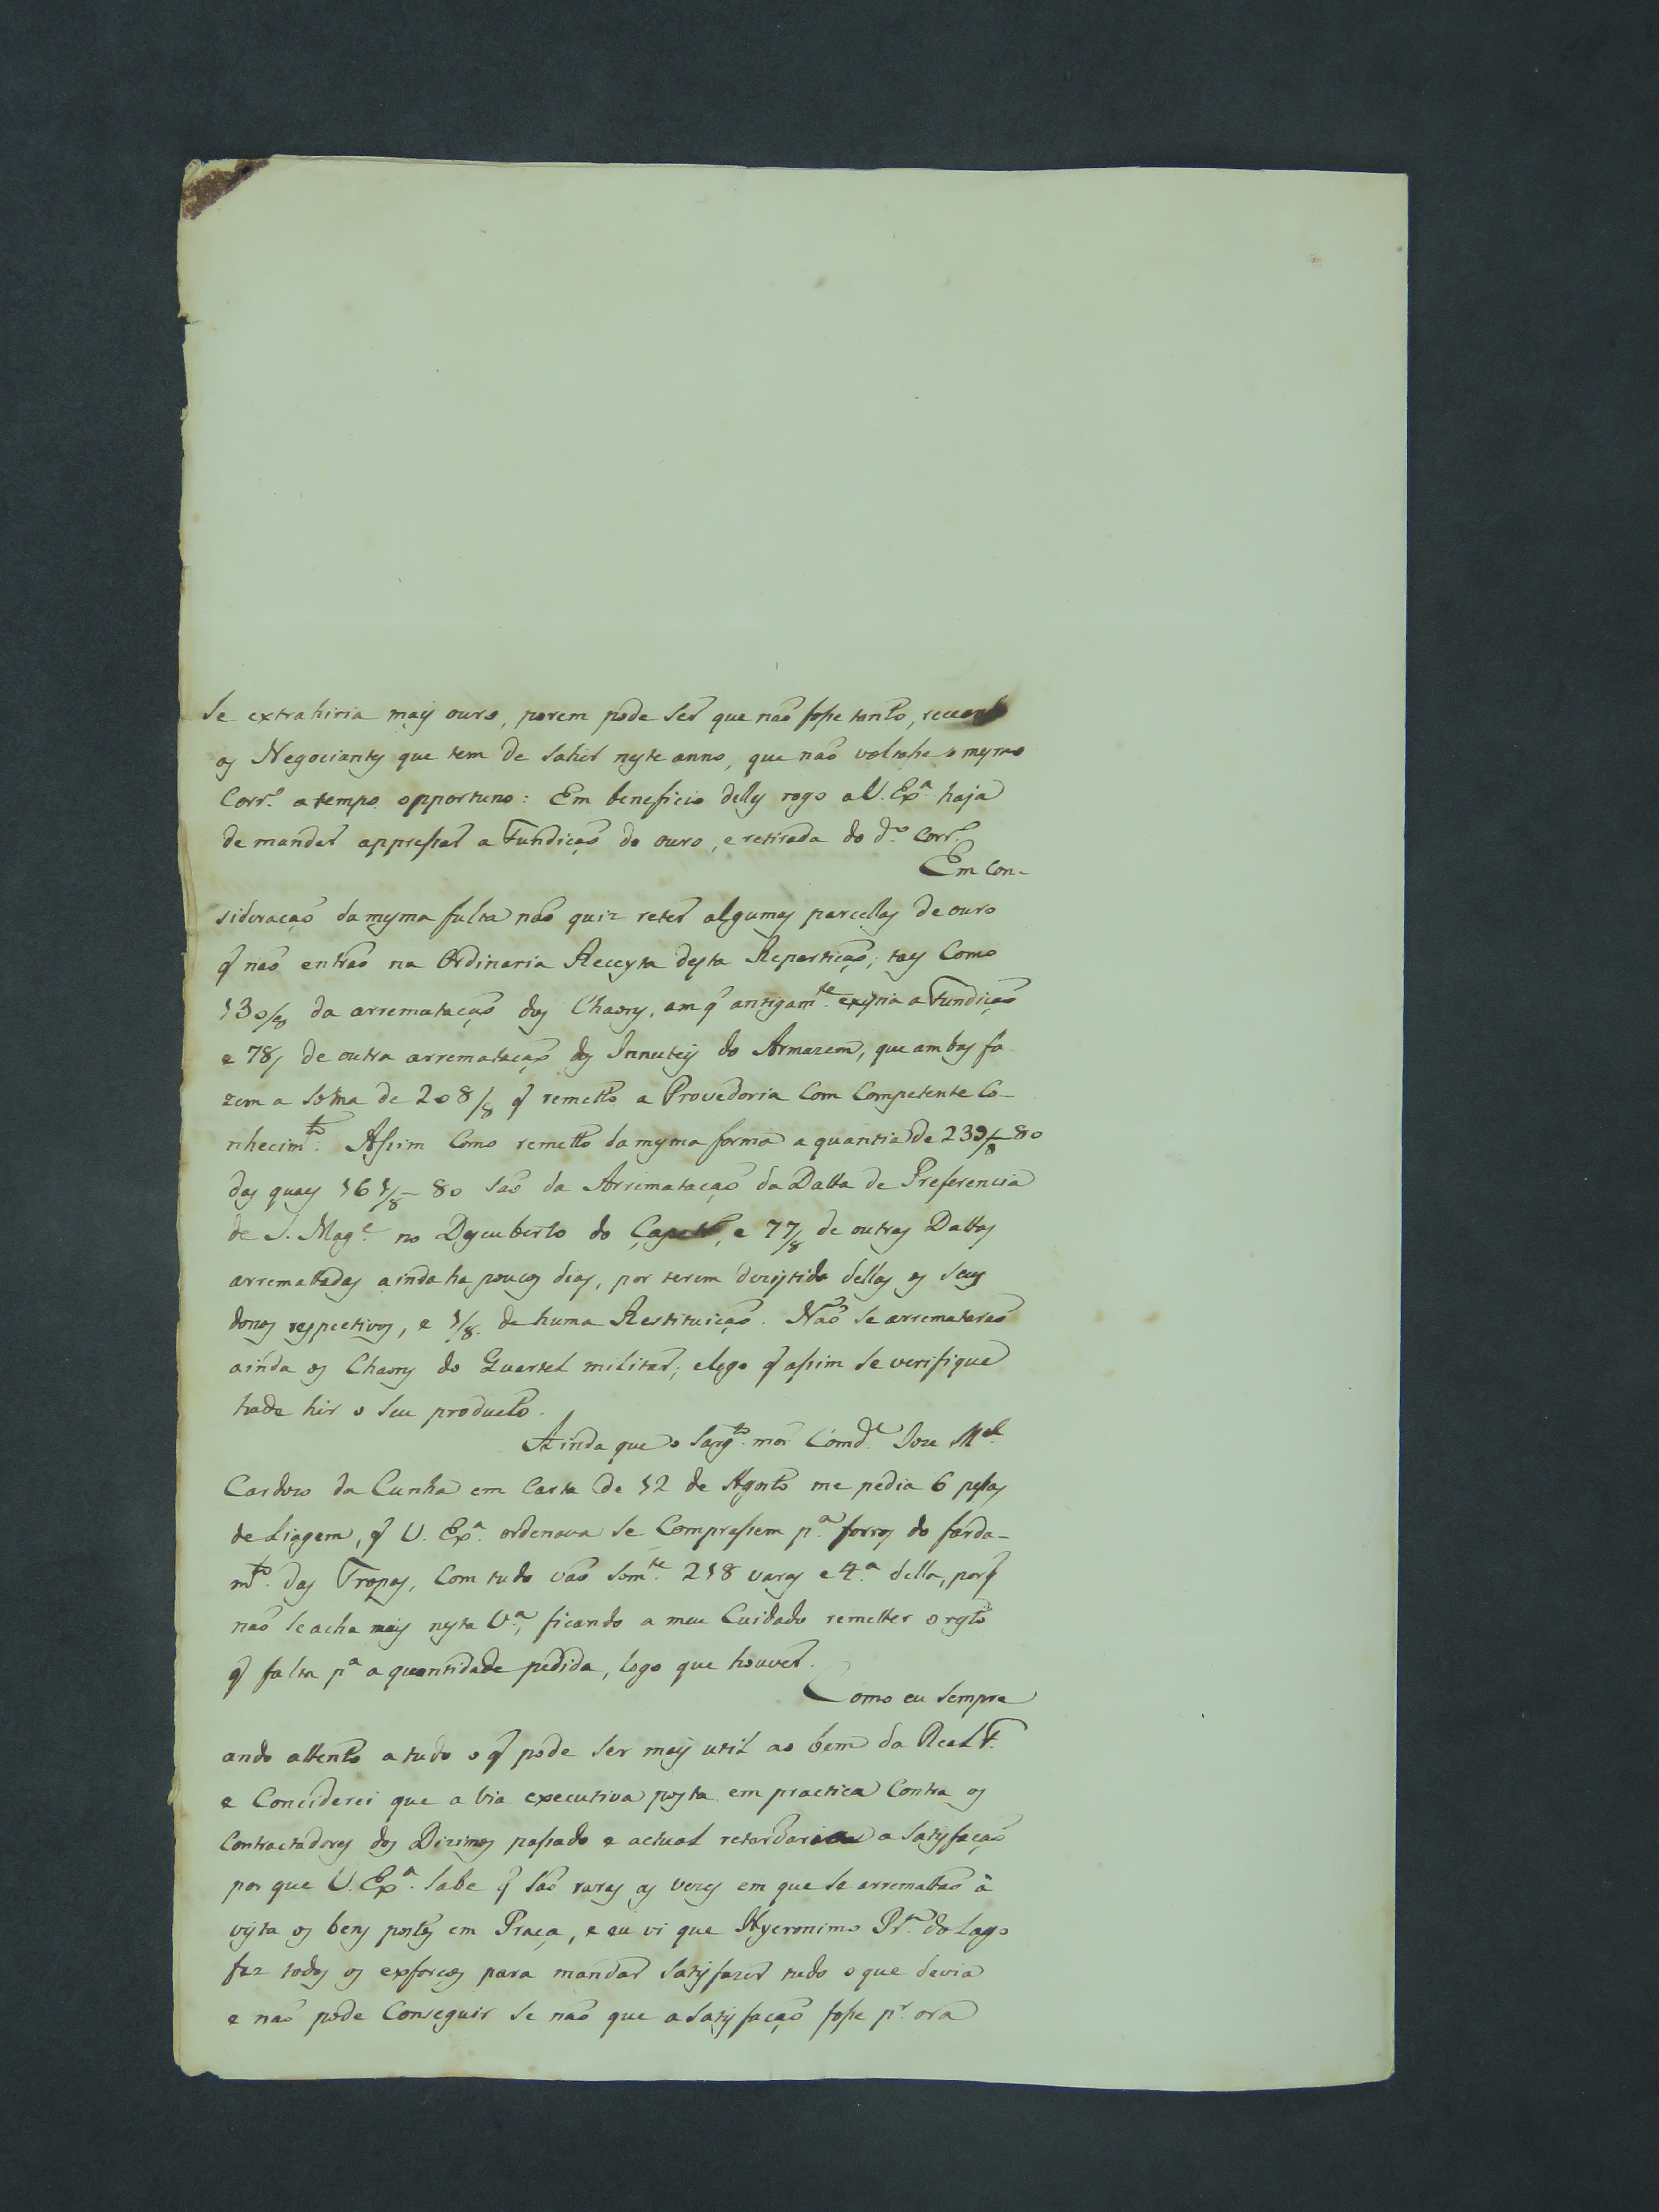 se extrahiria mais ouro, porem pode ser que não fosse tanto, receando
os Negociantes que tem de sahir neste anno, que não voltasse o mesmo
Corr.º a tempo opportuno: Em beneficio delles rogo a V. Ex.ª haja
de mandar appressar a Fundição do ouro, e retirada do d.º Corr.º
Em con-
sideração da mesma falta não quiz reter algumas parcellas de ouro
q̃ não entrão na Ordinaria Receyta desta Repartição; taes Como
130/8 da arrematação dos Chaons, em q̃ antigam.te existia a Fundição
e 78/ de outra arrematação dos Innuteis do Armazem, que ambas fa
zem a Soma de 208/8 q̃ remetto a Provedoria Com Competente Co-
nhecim.to: Assim Como remetto da mesma forma a quantia de 239/8-80
das quaes 161/8-80 são da Arrematação da Datta de Preferencia
de S. Mag.e no Descuberto do e 77/8 de outras Dattas
arremattadas ainda ha poucos dias, por terem dezistido dellas os seus
donos respectivos, e 1/8. de huma Restituição. Não se arrematarão
ainda os Chaons do Quartel militar; e logo q̃ assim se verifique
hade hir o seu producto.
Ainda que o Sarg.to mór Comd.e Joze M.el
Cardozo da Cunha em Carta de 12 de Agosto me pedia 6 pessas
de Liagem, q̃ V. Ex.ª ordenava se Comprassem p.ª forros do farda-
m.to das Tropas, Com tudo vão som.te 218 varas e 4.ª della, porq̃
não se acha mais nesta V.ª, ficando a meu Cuidado remetter o resto
q̃ falta p.ª a quantidade pedida, logo que houver.
Como eu sempre
ando attento a tudo o q̃ pode ser mais util ao bem da Real F.
e Conciderei que a via executiva posta em practica Contra os
Contractadores dos Dizimos passado e actual retardaria a satisfação
por que V. Ex.ª sabe q̃ são raras as vezes em que se arremattão á
vista os bens postos em Praça, e eu vi que Hyeronimo P.ra do Lago
fez todos os exforços para mandar satisfazer tudo o que devia
e não pode Conseguir se não que a satisfação fosse p.r ora